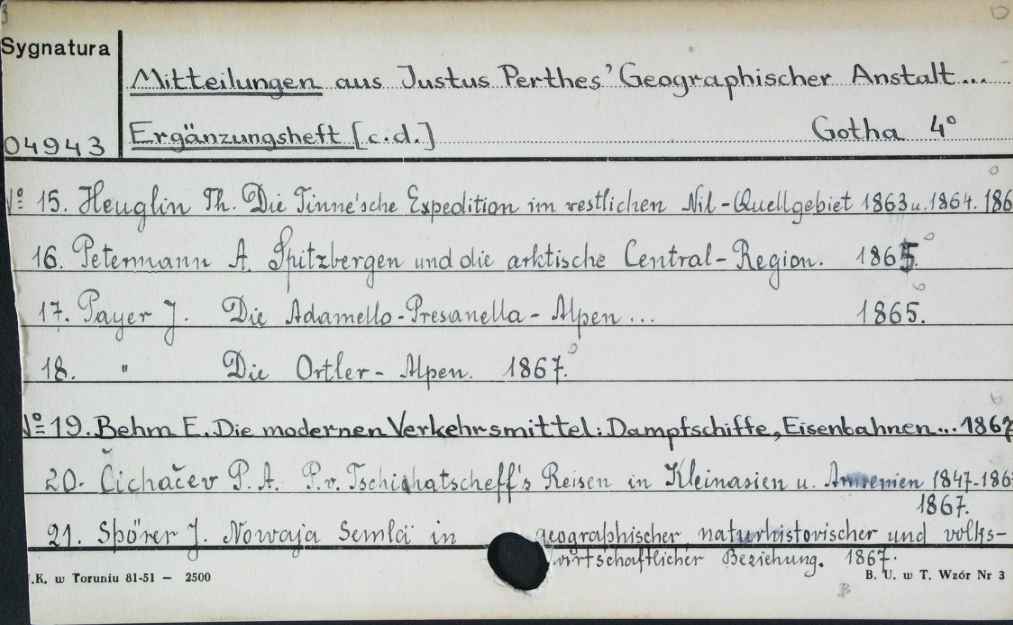 Sygnatura
Mitteilungen aus Justus Perthes' Geographischer Anstalt...
04943 Ergänzungsheft [c.d.] Gotha 4°
№ 15. Heuglin Th. Die Tinne'sche Expedition im westlichen Nil-Quellgebiet 1863 u. 1864. 186
16. Petermann A. Spitzbergen und die arktische Central-Region. 1865.
17. Payer J. Die Adamello-Presanella-Alpen... 1865.
18. " Die Ortler-Alpen. 1867.
№ 19. Behm E. Die modernen Verkehrsmittel: Dampfschiffe, Eisenbahnen... 1867
20. Čichačev P. A. P. v. Tschichatscheff's Reisen in Kleinasien u. Armenien 1847-186
1867.
21. Spörer J. Nowaja Semlä in geographischer naturhistorischer und volks-
wirtschaftlicher Beziehung. 1867.
.K. w Toruniu 81-51 — 2500 B. U. w T. Wzór Nr 3